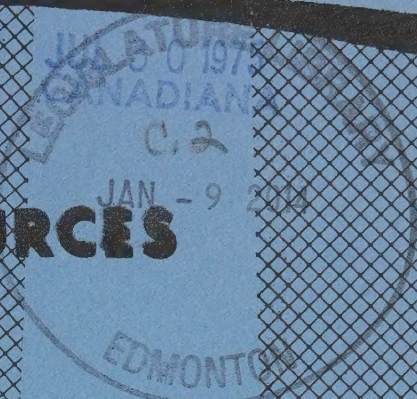 LEGISLATURE LIBRARY
JUL 30 1975
CANADIANA
C.2
JAN - 9 2014
RCES
EDMONTON